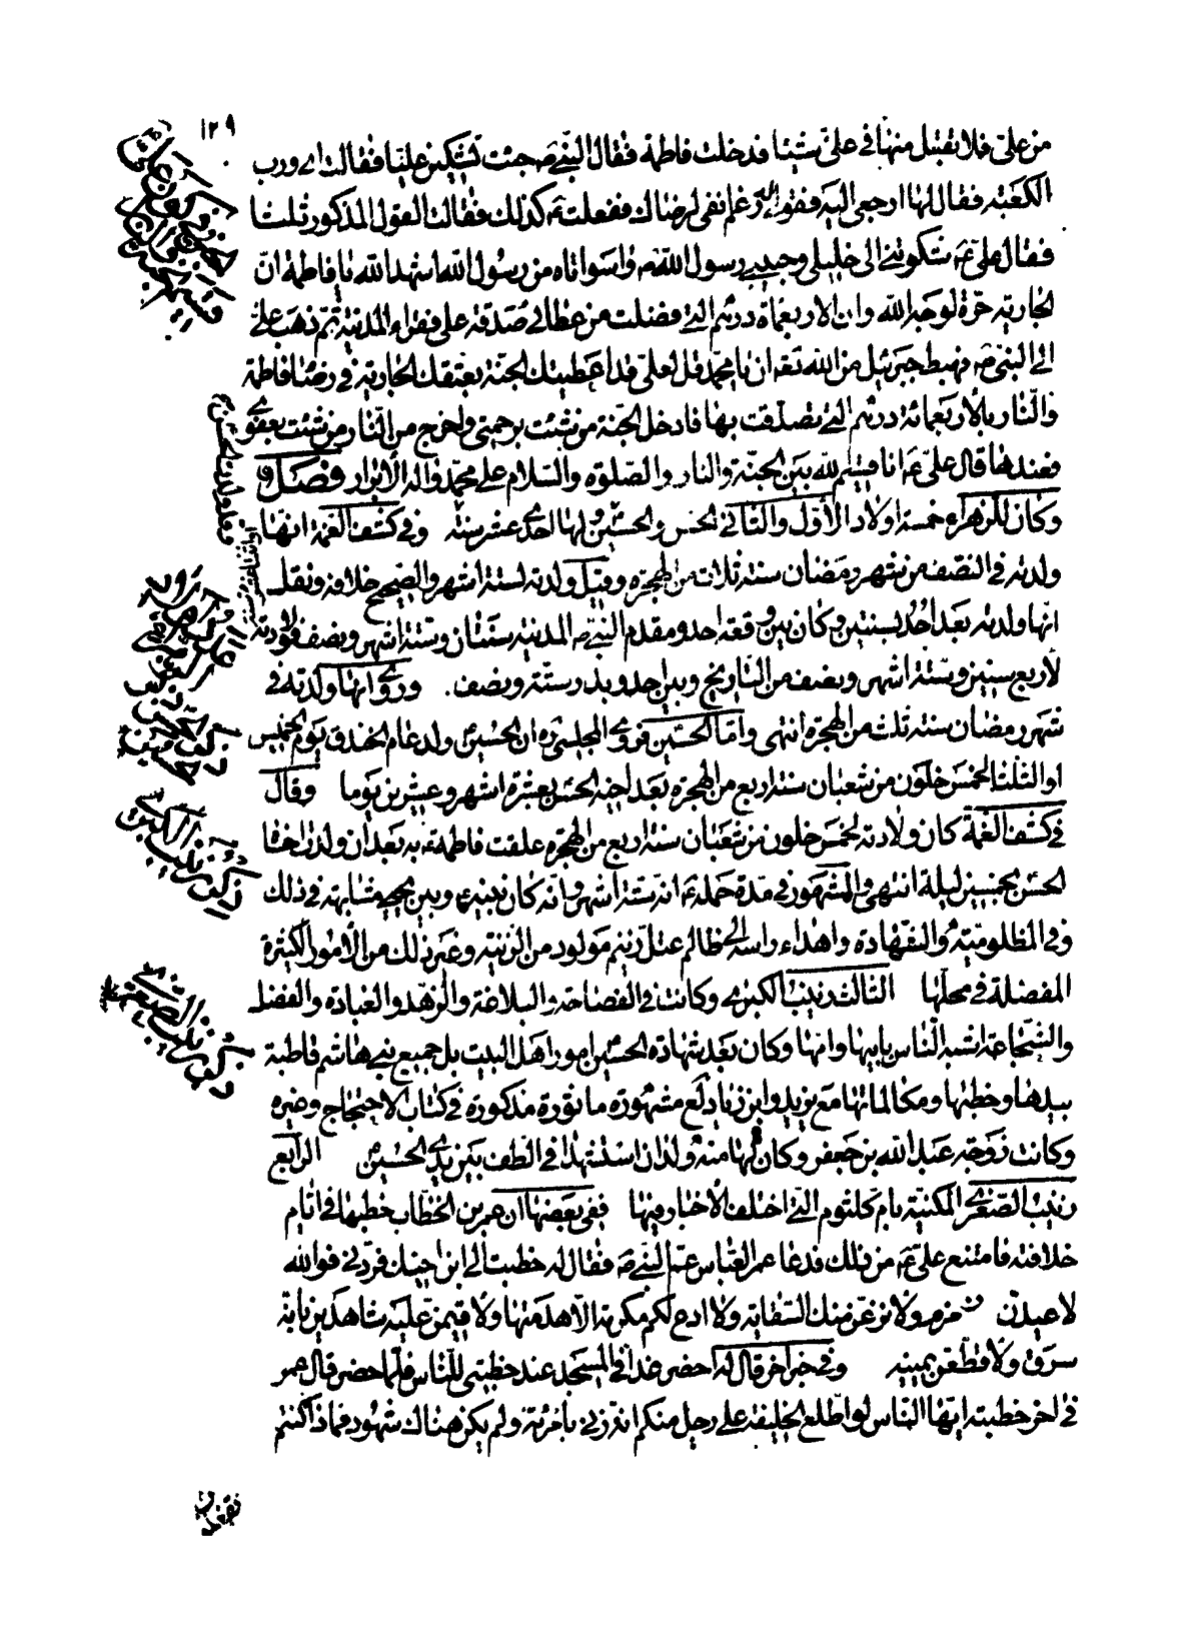 ١٢٩
من علیّ فلا تقبل منها فی علیّ شیئا فدخلت فاطمة فقال النبی ص جئت تشکین علیّا فقالت ای ورب
الکعبة فقال لها ارجعی الیه فقولی رغم انفی لرضاک ففعلت کذلک فقالت القول المذکور ثلثا
فقال علی ع شکوتنی الی خلیلی وحبیبی رسول الله ص واسواتاه من رسول الله اشهد الله یا فاطمة انّ
الجاریة حرّة لوجه الله وان الاربعماة درهم التی فضلت من عطائی صدقة علی فقراء المدینة ثم ذهب علیّ
الی النبی ص فهبط جبرئیل من الله تعه ان یا محمد قل لعلی قد اعطیتک الجنة بعتقک الجاریة فی رضا فاطمة
والنّار بالاربعمائة درهم التی تصدّقت بها فادخل الجّنة من شئت برحمتی واخرج من النّار من شئت بعفوی
فعندها قال علیّ ع انا قسیم لله بین الجنّة والنار والصّلوة والسّلام علی محمّد واله الابرار فصل
وکان للزهراء خمسة اولاد الأوّل والثانی الحسن والحسین ولها احدی عشر سنة وفی کشف الغمة انها
ولدته فی النصف من شهر رمضان سنة ثلاث من الهجرة وقیل ولدته لستة اشهر والصّحیح خلافه ونقل
انها ولدته بعد احُد بسنتین وکان بین وقعه احد ومقدم النبی ص المدینة سنتان وستة اشهر ونصف فولادته
لأربع سنین وستّة اشهر ونصف من التاریخ وبین احد وبدر سنة ونصف. وروی انها ولدته فی
شهر رمضان سنة ثلث من الهجرة انتهی وامّا الحسین فروی المجلسی ره ان الحسین ولد عام الخندق یوم الخمیس
او الثلثا لخمس خلون من شعبان سنة اربع من الهجرة بعد اخیه الحسن بعشرة اشهر وعشرین یوما وقال
فی کشف الغمة کان ولادته لخمس خلون من شعبان سنة اربع من الهجرة علقت فاطمة ع به بعد ان ولدت اخاه
الحسن بخمسین لیلة انتهی والمشهور فی مدة حمله ع انه ستّة اشهر وانّه کان بینه وبین یحیی مشابهة فی ذلک
وفی المظلومیّة والشهادة واهداء راسه الی ظالم عتلّ زنیم مولود من الزنیة وغیر ذلک من الأمور الکثیرة
المفصلة فی محلّها الثالث زینب الکبری وکانت فی الفصاحة والبلاغة والزهد والعبادة والفضل
والشّجاعة اشبه النّاس بابیها وامها وکان بعد شهادة الحسین امور اهل البیت بل جمیع بنی هاشم قاطبة
بیدها وخطبها ومکالماتها مع یزید وابن زیاد لع مشهورة ماثورة مذکورة فی کتاب الاحتجاج وغیره
وکانت زوجة عبد الله بن جعفر وکان لها منه ولدان استشهدا فی الطف بین یدی الحسین الرّابع
زینب الصّغری المکنیّة بام کلثوم التی اختلف الاخبار فیها ففی بعضها ان عمر بن الخطّاب خطبها فی ایّام
خلافته فامتنع علیّ ع من ذلک فدعا عمر العبّاس عمّ النبی ص فقال له خطبت الی ابن اخیک فردّنی فوالله
لاعیدنّ زمزم ولا نزعن منک السّقایة ولا ادع لکم مکرمة الّا هدمتها ولا قیمن علیه شاهدین بانه
سرق ولاقطعن یمینه وفی خبر اخر قال له احضر غدا فی المسجد عند خطبتی للنّاس فلمّا حضر قال عمر
فی اخر خطبته ایّها النّاس لو اطّلع الخلیفة علی رجل منکم انه زنی بامرئة ولم یکن هناک شهود فماذا کنتم